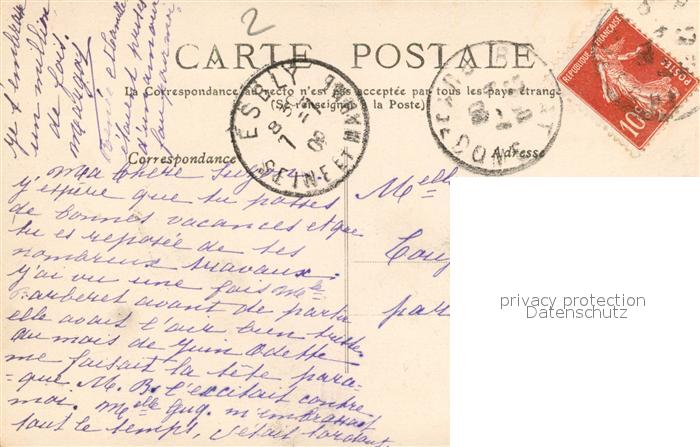 2
CARTE POSTALE
La Correspondance au recto n'est pas acceptée par tous les pays étrangers
(Se renseigner à la Poste)
Correspondance
Adresse
ESBLY
SEINE-ET-MARNE
RÉPUBLIQUE FRANÇAISE
10
je t'embrasse
un million
de fois.
ma chère Suzon
j'espère que tu passes
de bonnes vacances et que
tu es reposée de tes
nombreux travaux.
j'ai vu une fois Mlle
Barberet avant de partir
elle avait l'air bien triste
au mois de juin Odette
me faisait la tête para-
-que M. B. l'excitait contre
moi. Melle Guq. m'embrassait
tout le temps, c'était tordant.
Melle
par
privacy protection
Datenschutz